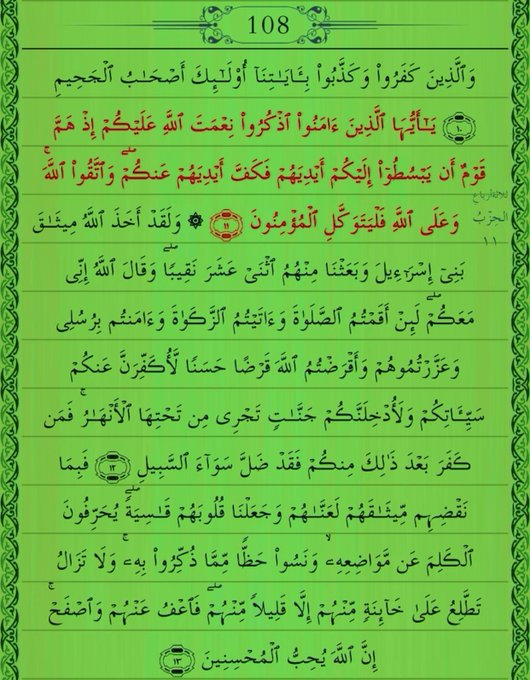 108
وَٱلَّذِينَ كَفَرُوا۟ وَكَذَّبُوا۟ بِـَٔايَـٰتِنَآ أُو۟لَـٰٓئِكَ أَصْحَـٰبُ ٱلْجَحِيمِ
١٠ يَـٰٓأَيُّهَا ٱلَّذِينَ ءَامَنُوا۟ ٱذْكُرُوا۟ نِعْمَتَ ٱللَّهِ عَلَيْكُمْ إِذْ هَمَّ
قَوْمٌ أَن يَبْسُطُوٓا۟ إِلَيْكُمْ أَيْدِيَهُمْ فَكَفَّ أَيْدِيَهُمْ عَنكُمْ ۖ وَٱتَّقُوا۟ ٱللَّهَ ۚ
وَعَلَى ٱللَّهِ فَلْيَتَوَكَّلِ ٱلْمُؤْمِنُونَ ١١ ۞ وَلَقَدْ أَخَذَ ٱللَّهُ مِيثَـٰقَ
ثلاثة أرباع
الحِزْبُ
١١
بَنِىٓ إِسْرَٰٓءِيلَ وَبَعَثْنَا مِنْهُمُ ٱثْنَىْ عَشَرَ نَقِيبًا ۖ وَقَالَ ٱللَّهُ إِنِّى
مَعَكُمْ ۖ لَئِنْ أَقَمْتُمُ ٱلصَّلَوٰةَ وَءَاتَيْتُمُ ٱلزَّكَوٰةَ وَءَامَنتُم بِرُسُلِى
وَعَزَّرْتُمُوهُمْ وَأَقْرَضْتُمُ ٱللَّهَ قَرْضًا حَسَنًا لَّأُكَفِّرَنَّ عَنكُمْ
سَيِّـَٔاتِكُمْ وَلَأُدْخِلَنَّكُمْ جَنَّـٰتٍ تَجْرِى مِن تَحْتِهَا ٱلْأَنْهَـٰرُ ۚ فَمَن
كَفَرَ بَعْدَ ذَٰلِكَ مِنكُمْ فَقَدْ ضَلَّ سَوَآءَ ٱلسَّبِيلِ ١٢ فَبِمَا
نَقْضِهِم مِّيثَـٰقَهُمْ لَعَنَّـٰهُمْ وَجَعَلْنَا قُلُوبَهُمْ قَـٰسِيَةً ۖ يُحَرِّفُونَ
ٱلْكَلِمَ عَن مَّوَاضِعِهِۦ ۙ وَنَسُوا۟ حَظًّا مِّمَّا ذُكِّرُوا۟ بِهِۦ ۚ وَلَا تَزَالُ
تَطَّلِعُ عَلَىٰ خَآئِنَةٍ مِّنْهُمْ إِلَّا قَلِيلًا مِّنْهُمْ ۖ فَٱعْفُ عَنْهُمْ وَٱصْفَحْ ۚ
إِنَّ ٱللَّهَ يُحِبُّ ٱلْمُحْسِنِينَ ١٣